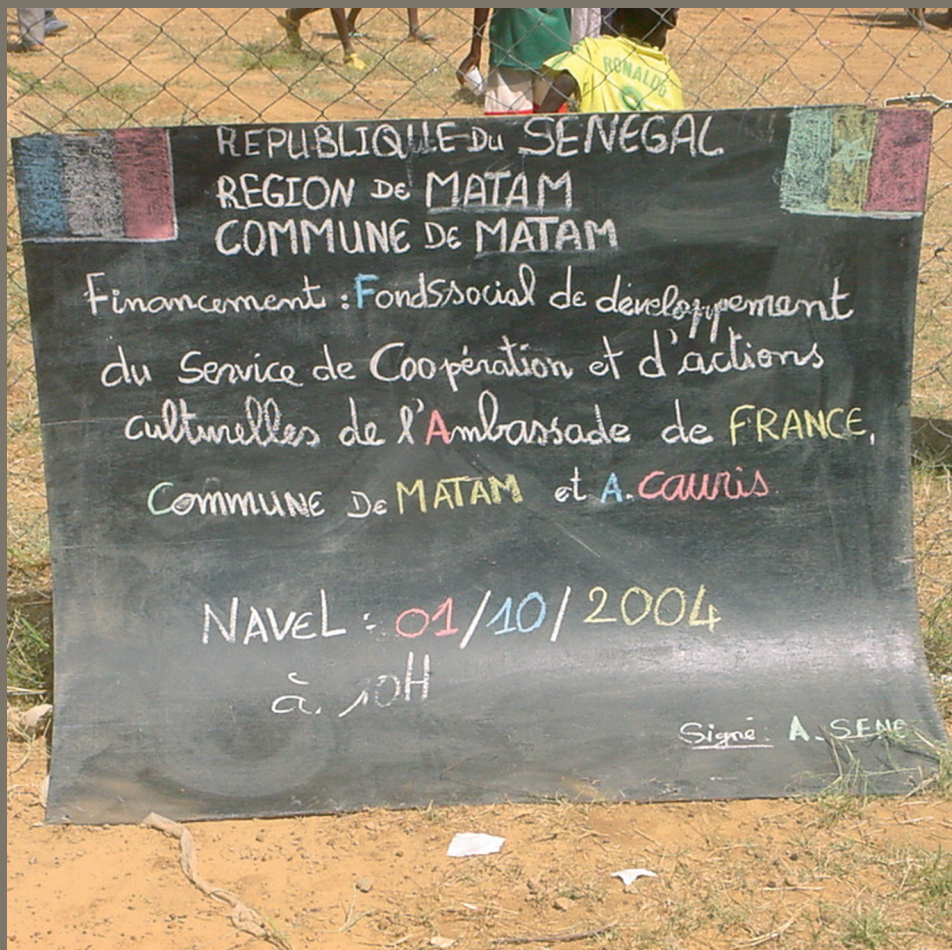 RONALDO
REPUBLIQUE DU SENEGAL
REGION DE MATAM
COMMUNE DE MATAM
Financement : Fonds social de développement
du Service de Coopération et d'actions
culturelles de l'Ambassade de FRANCE,
COMMUNE DE MATAM et A. Cauris
NAVEL : 01/10/2004
à 10H
Signé : A. SENE